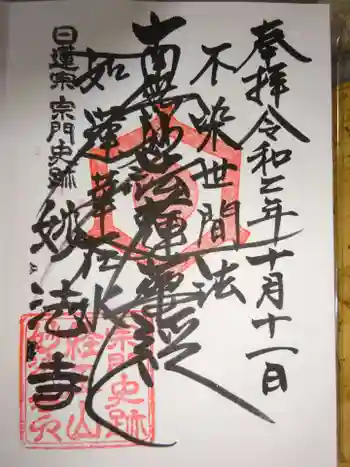 奉拝 令和三年十月十一日
不染世間法
南無妙法蓮華経
如蓮華在水
日蓮宗 宗門史跡
妙法寺
宗門史跡